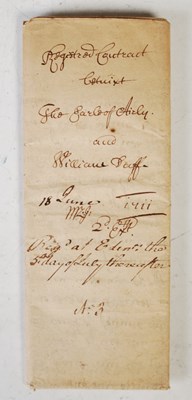 Registred Contract
betwixt
The Earle of Airly
and
William Duff
18 June
Regd at Edenr the
day of July thereafter
No 3